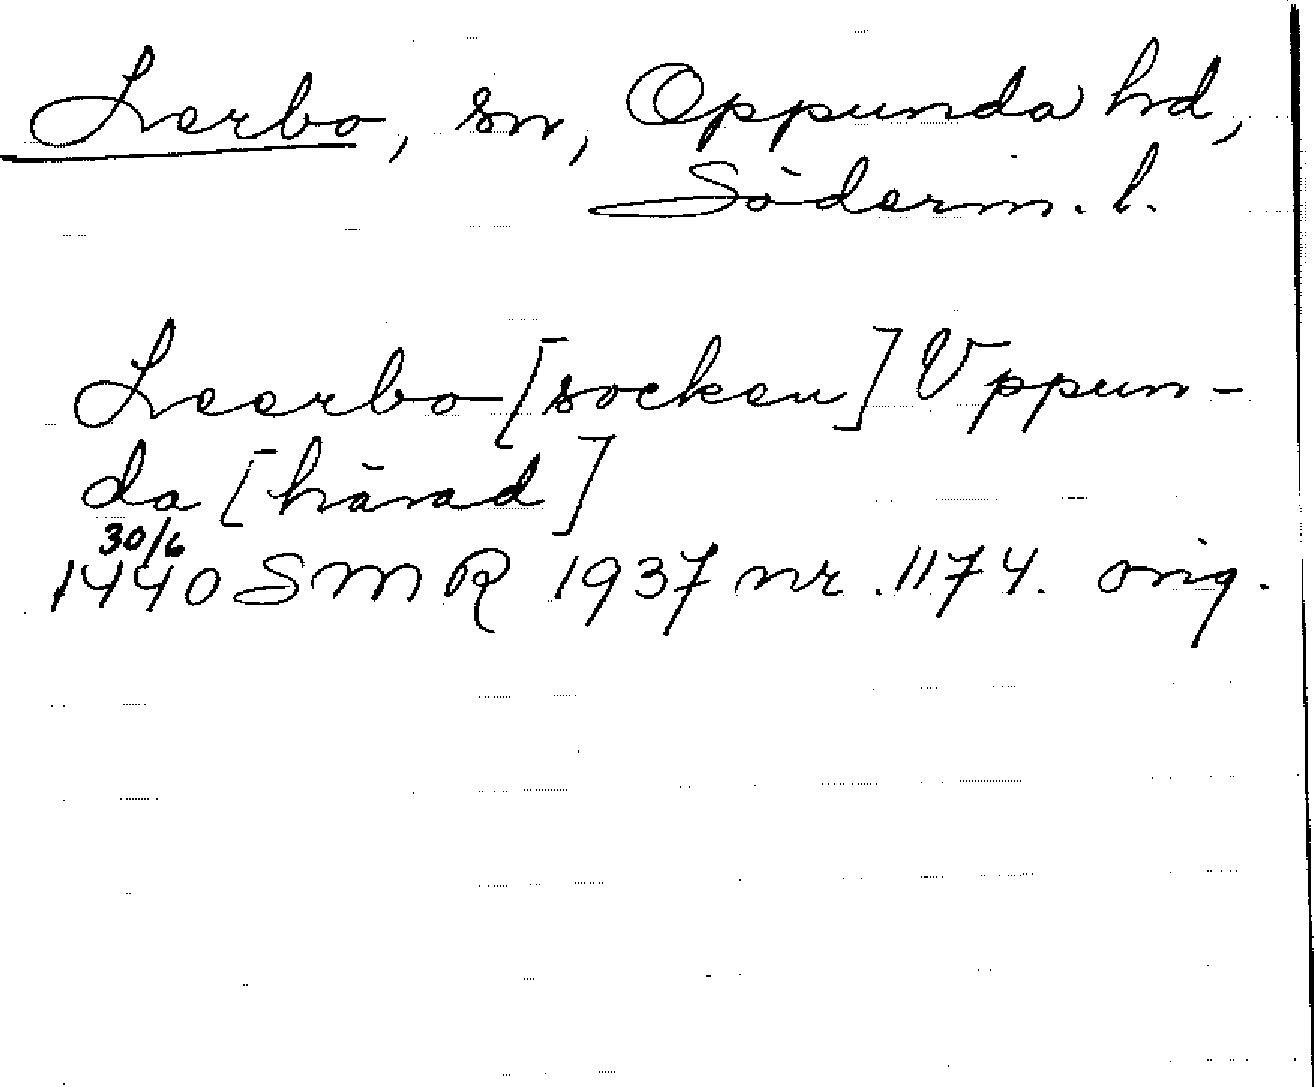 Lerbo, sn, Oppunda hd,
Söderm. l.
Leerbo [socken] Vppun-
da [härad]
30/6
1440 SMR 1937 nr. 1174. orig.